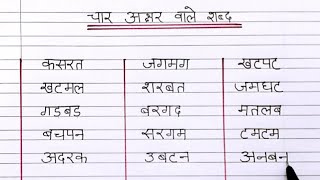 चार अक्षर वाले शब्द
कसरत जगमग खटपट
खटमल शरबत जमघट
गडबड बरगद मतलब
बचपन सरगम टमटम
अदरक उबटन अनबन